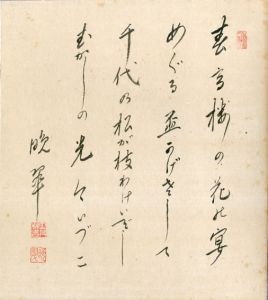 春高楼の花の宴
めぐる盃かげさして
千代の松が枝わけいでし
むかしの光今いづこ
晩翠